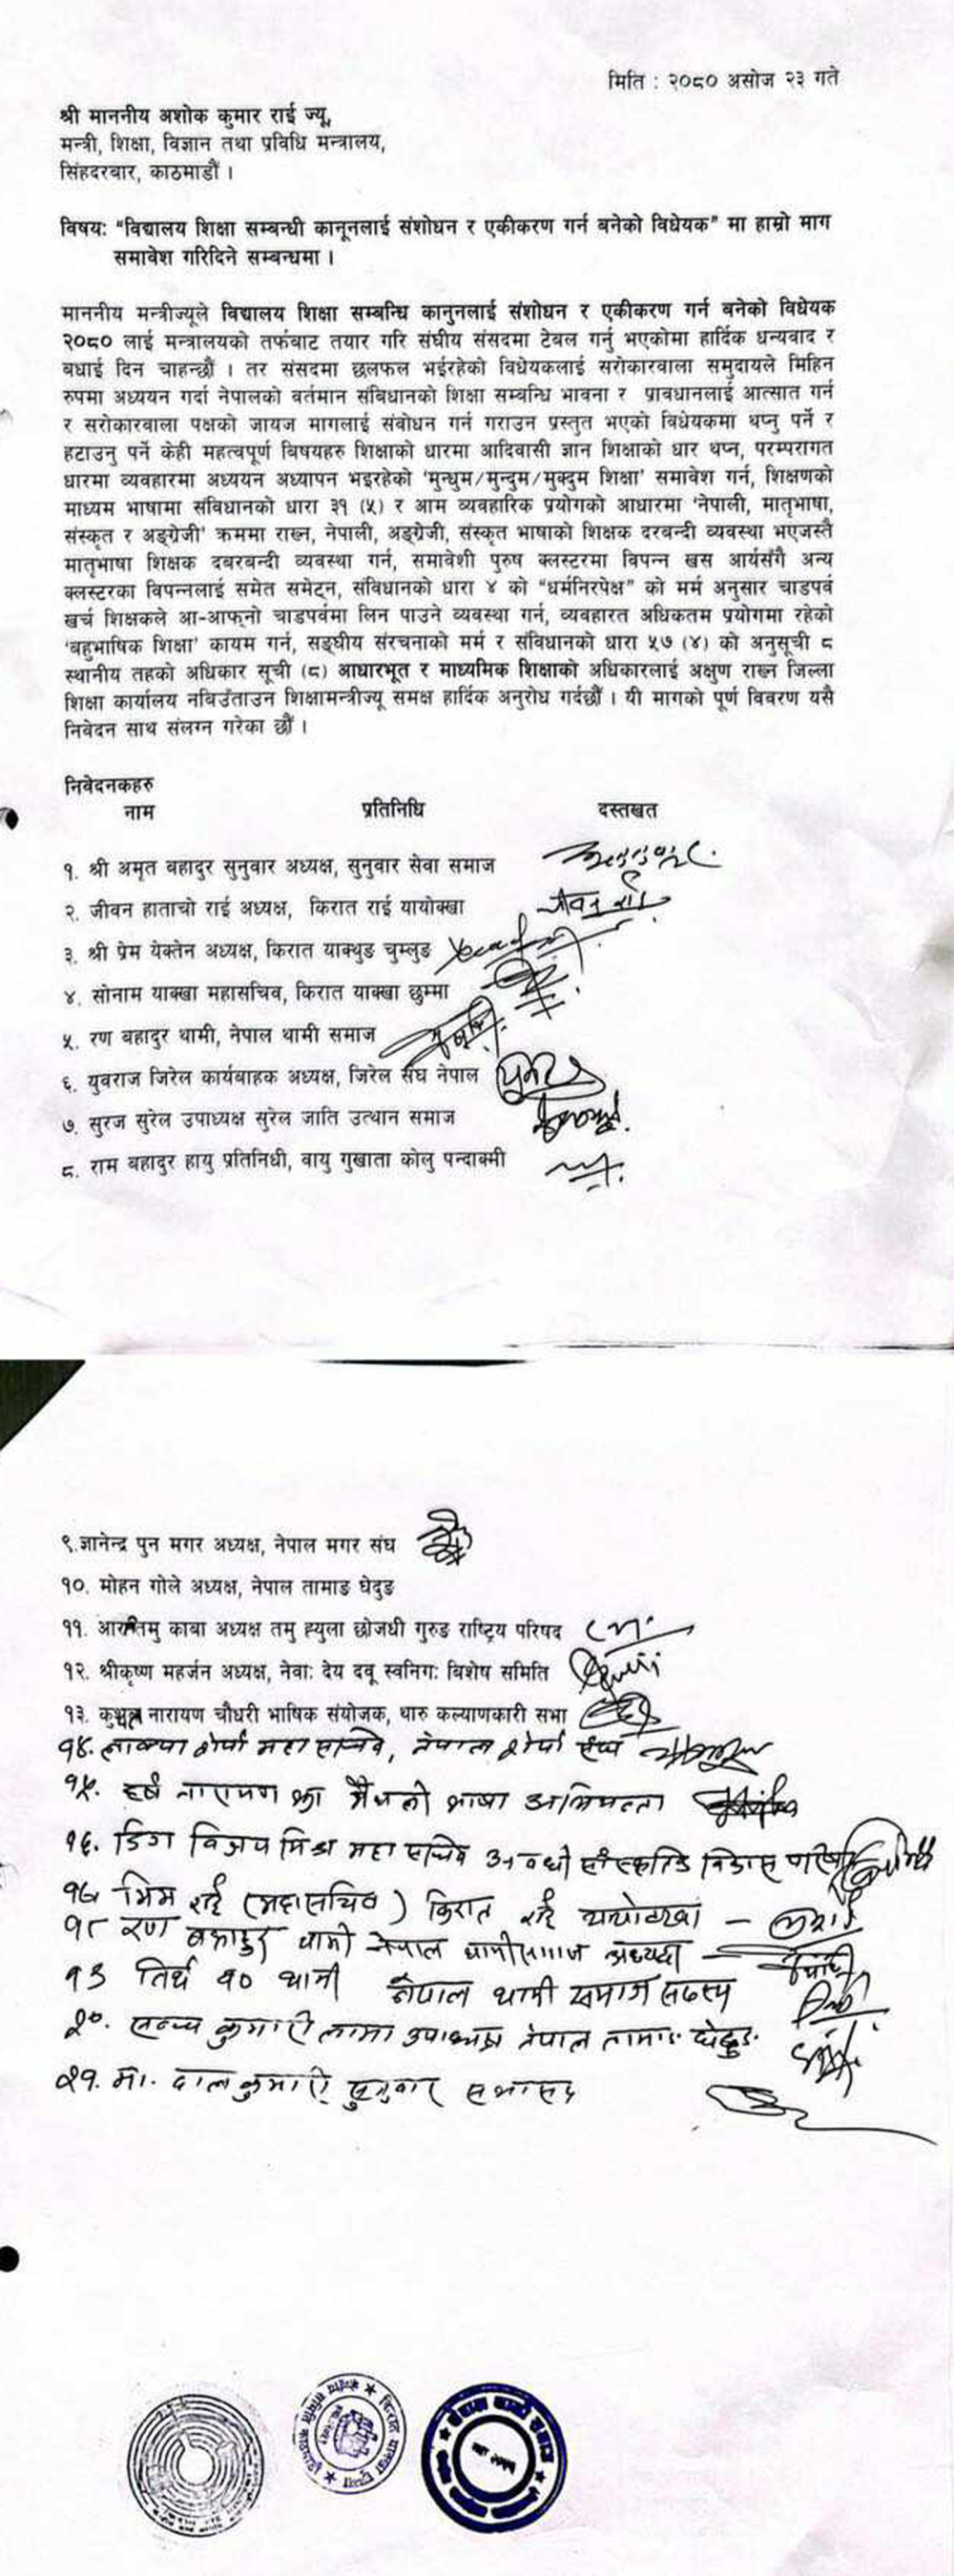 मिति : २०८० असोज २३ गते
श्री माननीय अशोक कुमार राई ज्यू,
मन्त्री, शिक्षा, विज्ञान तथा प्रविधि मन्त्रालय,
सिंहदरबार, काठमाडौं ।
विषय: “विद्यालय शिक्षा सम्बन्धी कानूनलाई संशोधन र एकीकरण गर्न बनेको विधेयक” मा हाम्रो माग
समावेश गरिदिने सम्बन्धमा ।
माननीय मन्त्रीज्यूले विद्यालय शिक्षा सम्बन्धि कानुनलाई संशोधन र एकीकरण गर्न बनेको विधेयक
२०८० लाई मन्त्रालयको तर्फबाट तयार गरि संघीय संसदमा टेबल गर्नु भएकोमा हार्दिक धन्यवाद र
बधाई दिन चाहन्छौं । तर संसदमा छलफल भईरहेको विधेयकलाई सरोकारवाला समुदायले मिहिन
रुपमा अध्ययन गर्दा नेपालको वर्तमान संविधानको शिक्षा सम्बन्धि भावना र प्रावधानलाई आत्सात गर्न
र सरोकारवाला पक्षको जायज मागलाई संवोधन गर्न गराउन प्रस्तुत भएको विधेयकमा थप्नु पर्ने र
हटाउनु पर्ने केही महत्वपूर्ण बिषयहरु शिक्षाको धारमा आदिवासी ज्ञान शिक्षाको धार थप्न, परम्परागत
धारमा व्यवहारमा अध्ययन अध्यापन भइरहेको ‘मुन्धुम/मुन्दुम/मुक्दुम शिक्षा’ समावेश गर्न, शिक्षणको
माध्यम भाषामा संविधानको धारा ३१ (५) र आम व्यवहारिक प्रयोगको आधारमा ‘नेपाली, मातृभाषा,
संस्कृत र अङ्ग्रेजी’ क्रममा राख्न, नेपाली, अङ्ग्रेजी, संस्कृत भाषाको शिक्षक दरबन्दी व्यवस्था भएजस्तै
मातृभाषा शिक्षक दबरबन्दी व्यवस्था गर्न, समावेशी पुरुष क्लस्टरमा विपन्न खस आर्यसँगै अन्य
क्लस्टरका विपन्नलाई समेत समेट्न, संविधानको धारा ४ को “धर्मनिरपेक्ष” को मर्म अनुसार चाडपर्व
खर्च शिक्षकले आ-आफ्नो चाडपर्वमा लिन पाउने व्यवस्था गर्न, व्यवहारत अधिकतम प्रयोगमा रहेको
‘बहुभाषिक शिक्षा’ कायम गर्न, सङ्घीय संरचनाको मर्म र संविधानको धारा ५७ (४) को अनुसूची ८
स्थानीय तहको अधिकार सूची (८) आधारभूत र माध्यमिक शिक्षाको अधिकारलाई अक्षुण राख्न जिल्ला
शिक्षा कार्यालय नबिउँताउन शिक्षामन्त्रीज्यू समक्ष हार्दिक अनुरोध गर्दछौं । यी मागको पूर्ण विवरण यसै
निवेदन साथ संलग्न गरेका छौं ।
निवेदकहरु
नाम प्रतिनिधि दस्तखत
१. श्री अमृत बहादुर सुनुवार अध्यक्ष, सुनुवार सेवा समाज
२. जीवन हाताचो राई अध्यक्ष, किरात राई यायोक्खा
३. श्री प्रेम येक्तेन अध्यक्ष, किरात याक्थुङ चुम्लुङ
४. सोनाम याक्खा महासचिव, किरात याक्खा छुम्मा
५. रण बहादुर थामी, नेपाल थामी समाज
६. युवराज जिरेल कार्यबाहक अध्यक्ष, जिरेल संघ नेपाल
७. सुरज सुरेल उपाध्यक्ष सुरेल जाति उत्थान समाज
८. राम बहादुर हायु प्रतिनिधी, वायु गुखाता कोलु पन्दाक्मी
९.ज्ञानेन्द्र पुन मगर अध्यक्ष, नेपाल मगर संघ
१०. मोहन गोले अध्यक्ष, नेपाल तामाङ घेदुङ
११. काबा अध्यक्ष तमु ह्युला छोजधी गुरुङ राष्ट्रिय परिषद
१२. श्रीकृष्ण महर्जन अध्यक्ष, नेवाः देय दबू स्वनिगः बिशेष समिति
१३. नारायण चौधरी भाषिक संयोजक, थारु कल्याणकारी सभा
१४. ल्हाक्पा शेर्पा महासचिव, नेपाल शेर्पा संघ
१५. हर्ष नारायण झा मैथली भाषा
१६. विजय मिश्र महासचिव अवधी सांस्कृतिक विकास परिषद
१७ भिम राई (महासचिव) किरात राई यायोक्खा
१८ रण बहादुर थामी नेपाल थामी समाज अध्यक्ष
१९ तिर्थ ब० थामी नेपाल थामी समाज सदस्य
२०. कुमारी लामा उपाध्यक्ष नेपाल तामाङ घेदुङ
२१. मा. दल कुमारी सुनुवार सभासद